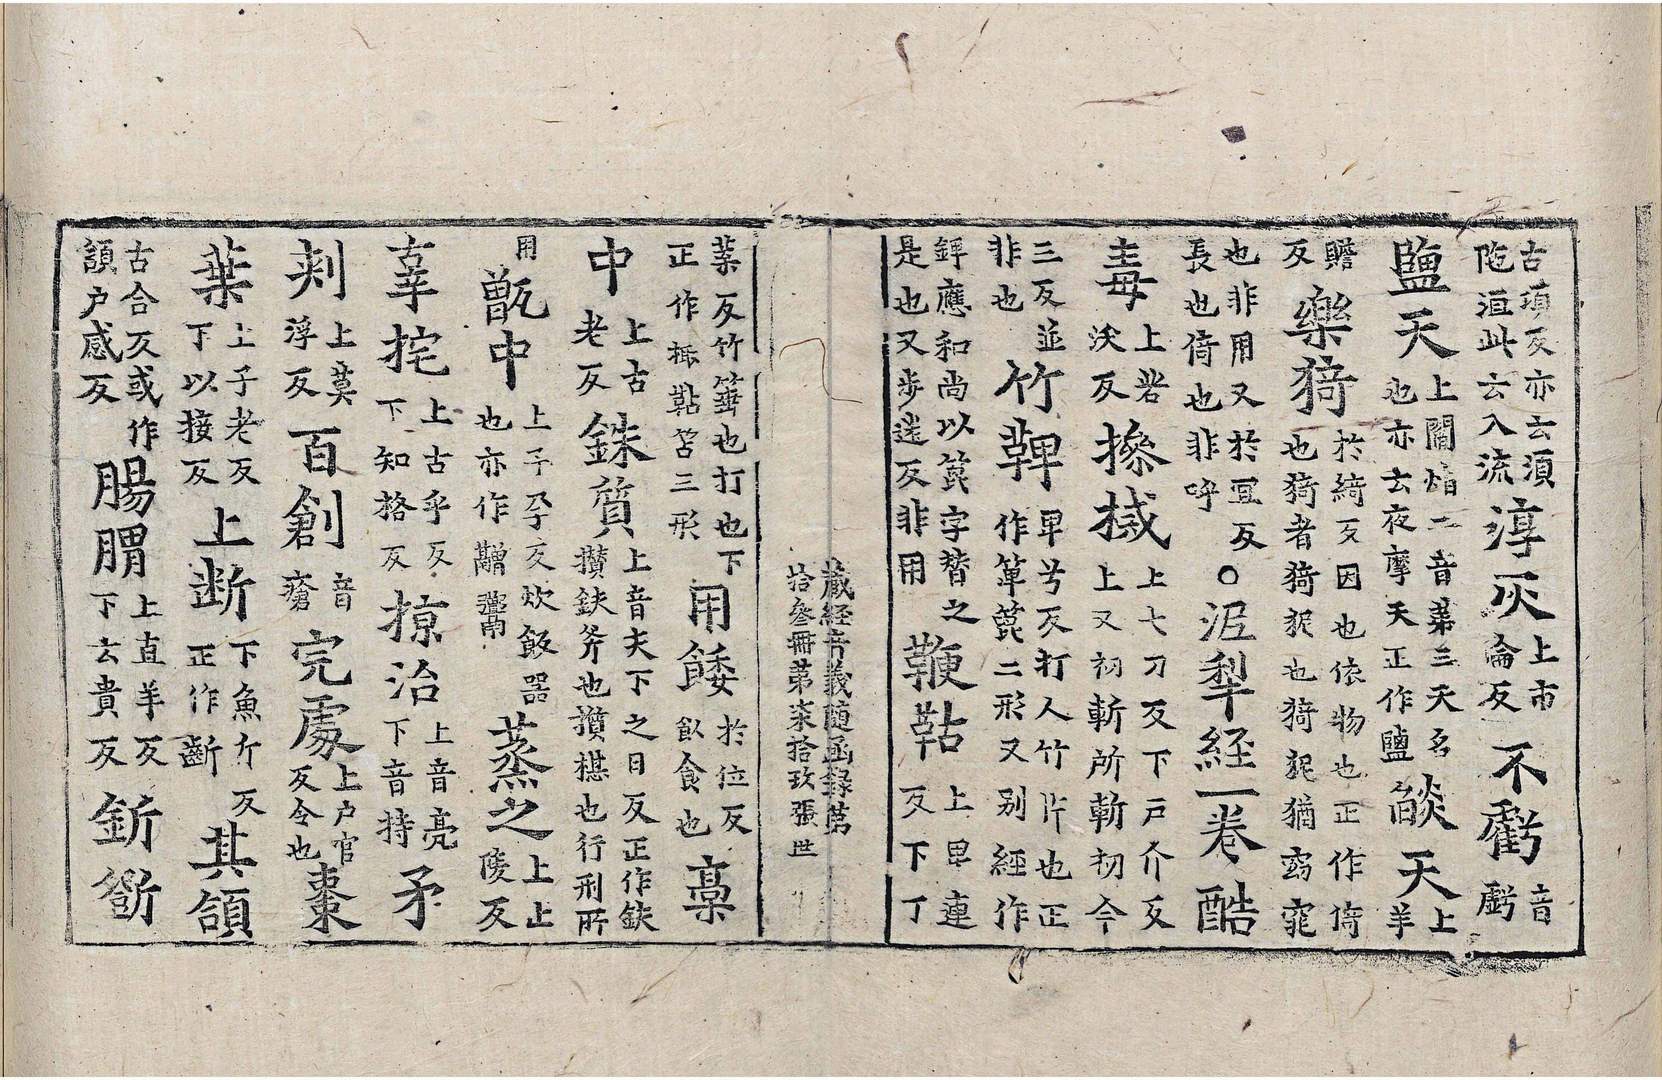 古項反亦云須
陁洹此云入流淳灰上市
倫反不虧音
虧
鹽天上閻焰二音苐三天名
也亦云夜摩天正作鹽㷋天上
羊
贍
反樂猗於綺反因也依物也正作倚
也猗者猗狔也猗狔猶窈窕
也非用又於冝反
長也倚也非呼○泥犁經一卷酷
毒上苦
沃反摻㭜上七刀反下戸介反
上又初斬所斬初今
三反並
非也竹鞞卑兮反打人竹片也正
作箄箆二形又別經作
錍應和尚以箆字替之
是也又步迷反非用鞭鞊上卑連
反下丁
藏經音義随函録苐
拾叄冊苐柒拾玖張 世
葉反竹箠也打也下
正作㧗鞊笞三形用餧於位反
飲食也槀
中上古
老反鈇質上音夫下之日反正作鈇
攢鈇斧也攢椹也行刑所
用甑中上子孕反炊飯器
也亦作䰝蒸之上止
陵反
辜挓上古乎反
下知格反掠治上音亮
下音持矛
刾上莫
浮反百創音
瘡完䖏上户官
反令也棗
葉上子老反
下以接反上断下魚斤反
正作齗其頷
古合反或作
頷户感反腸胃上直羊反
下云貴反釿斵